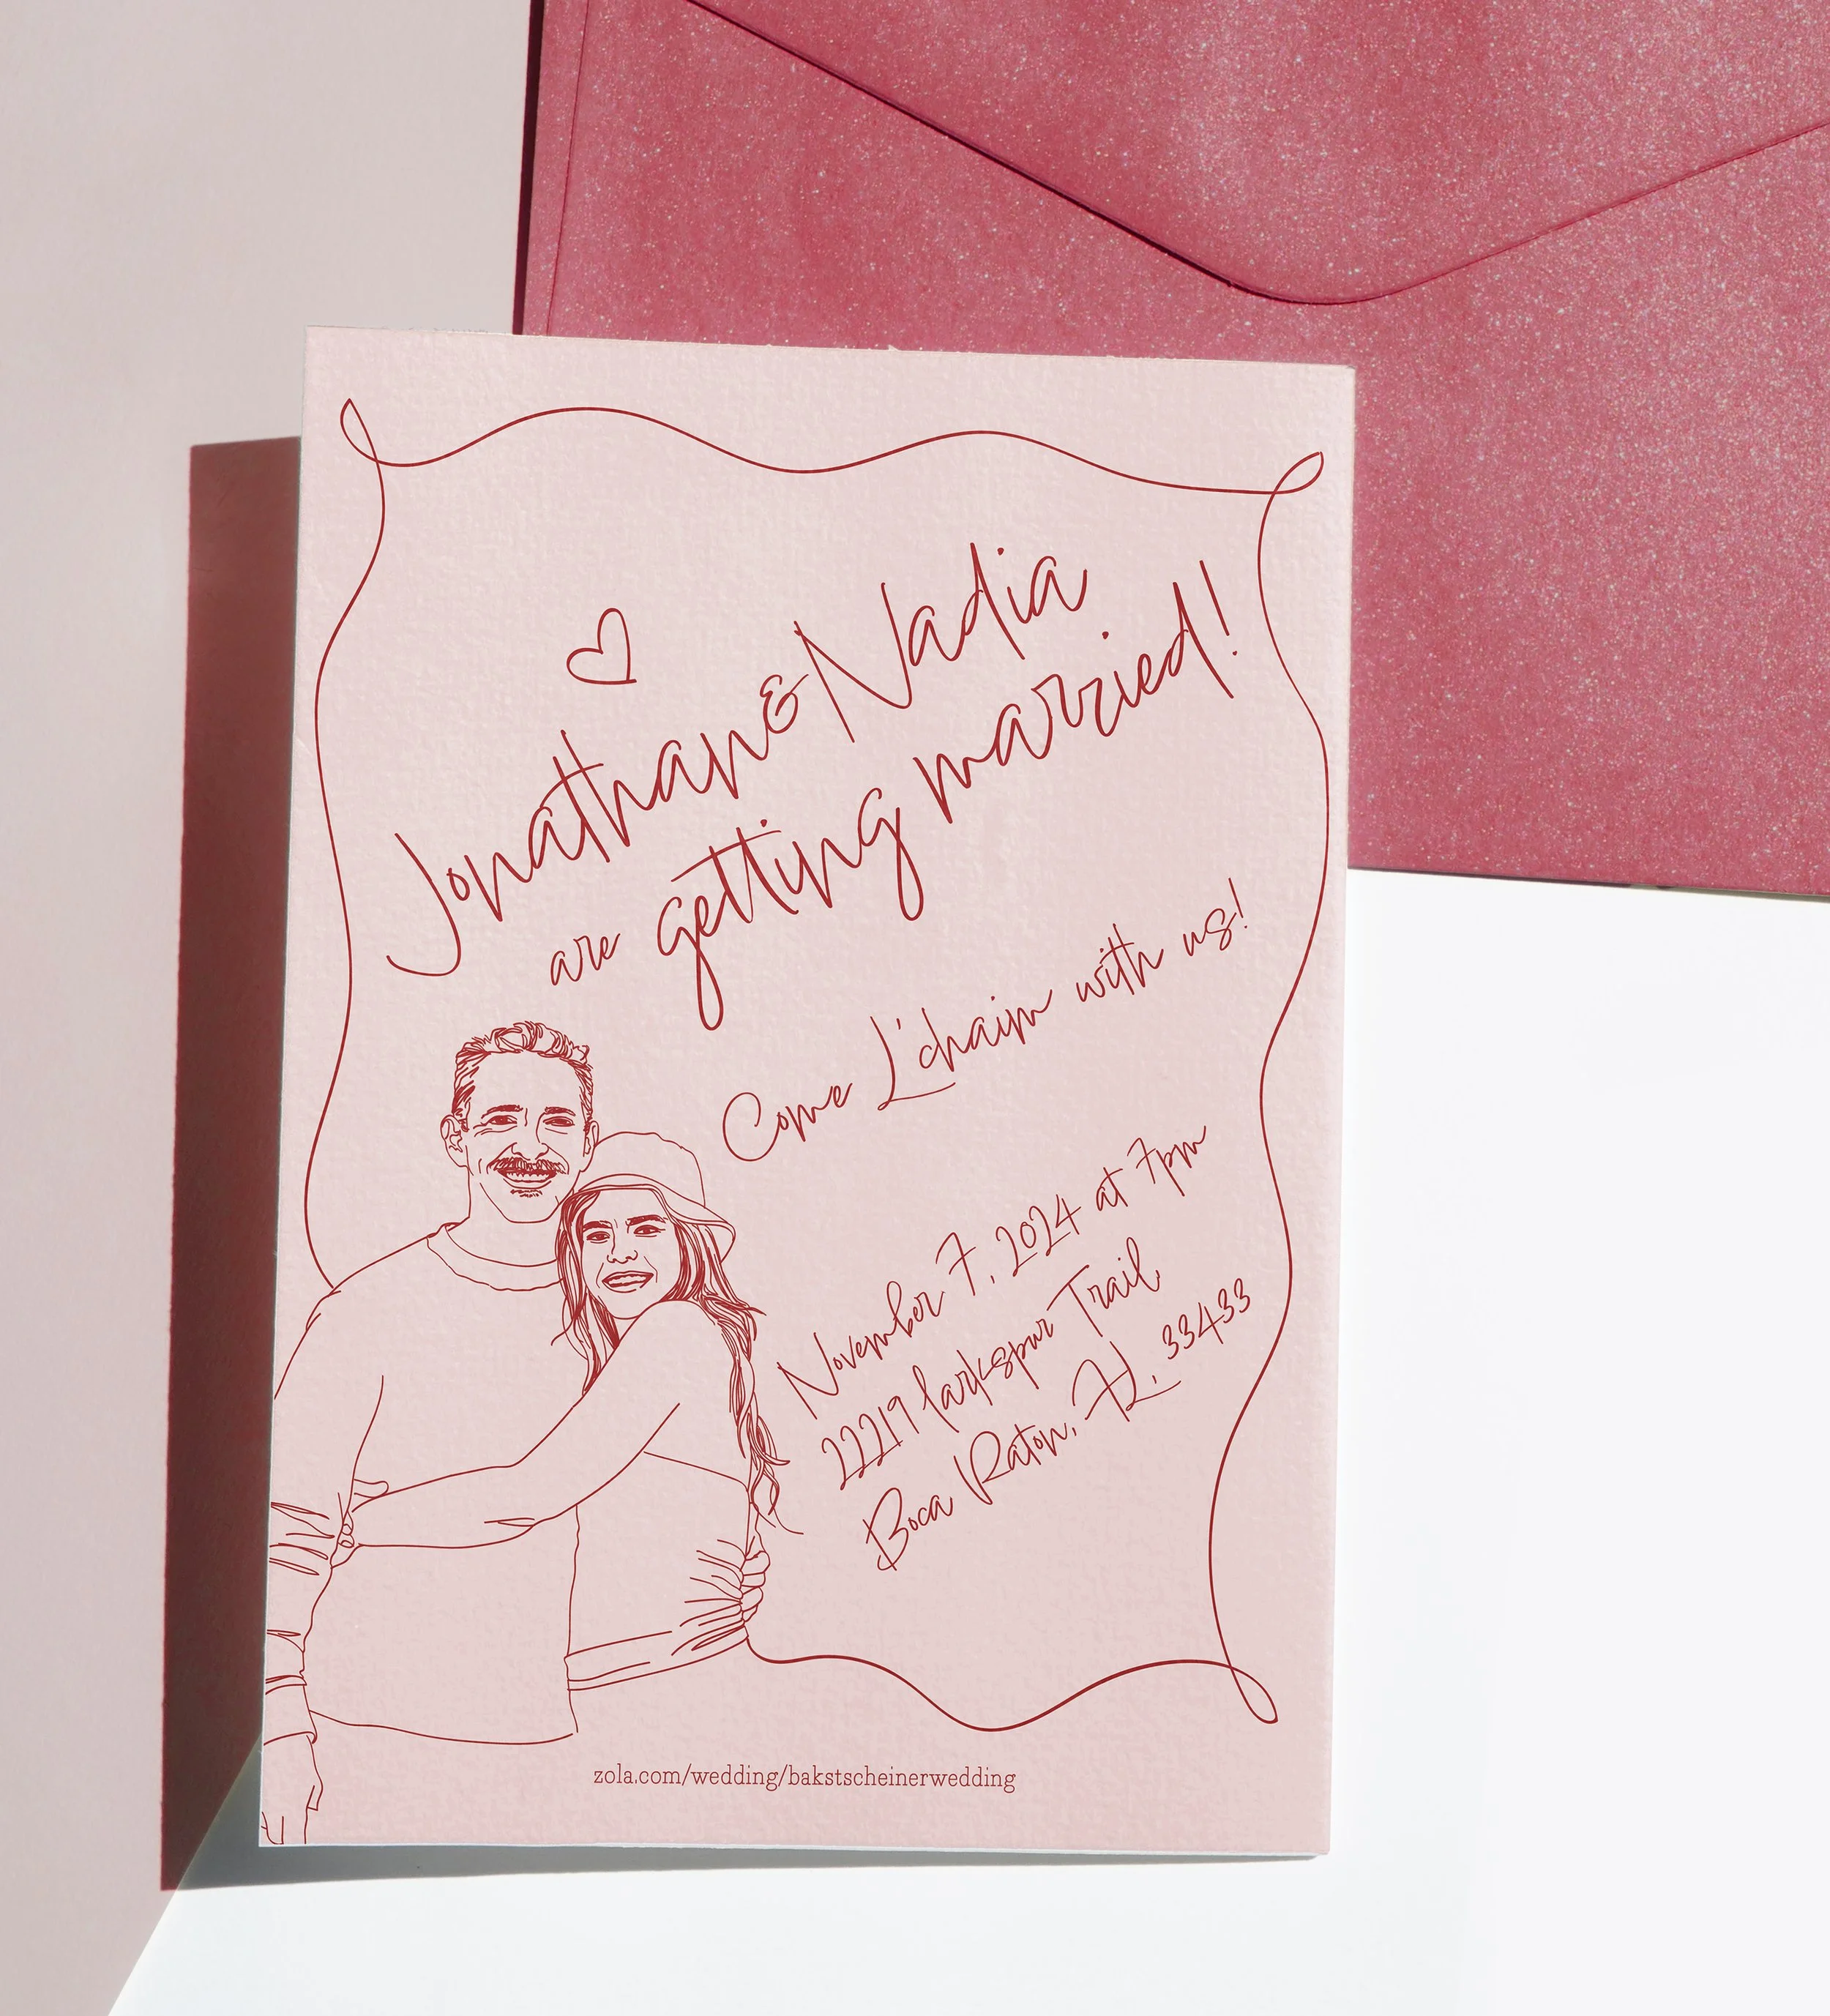 Jonathan & Nadia
are getting married!
Come L'chaim with us!
November 7, 2024 at 7pm
22219 larkspur Trail
Boca Raton, FL, 33433
zola.com/wedding/bakstscheinerwedding